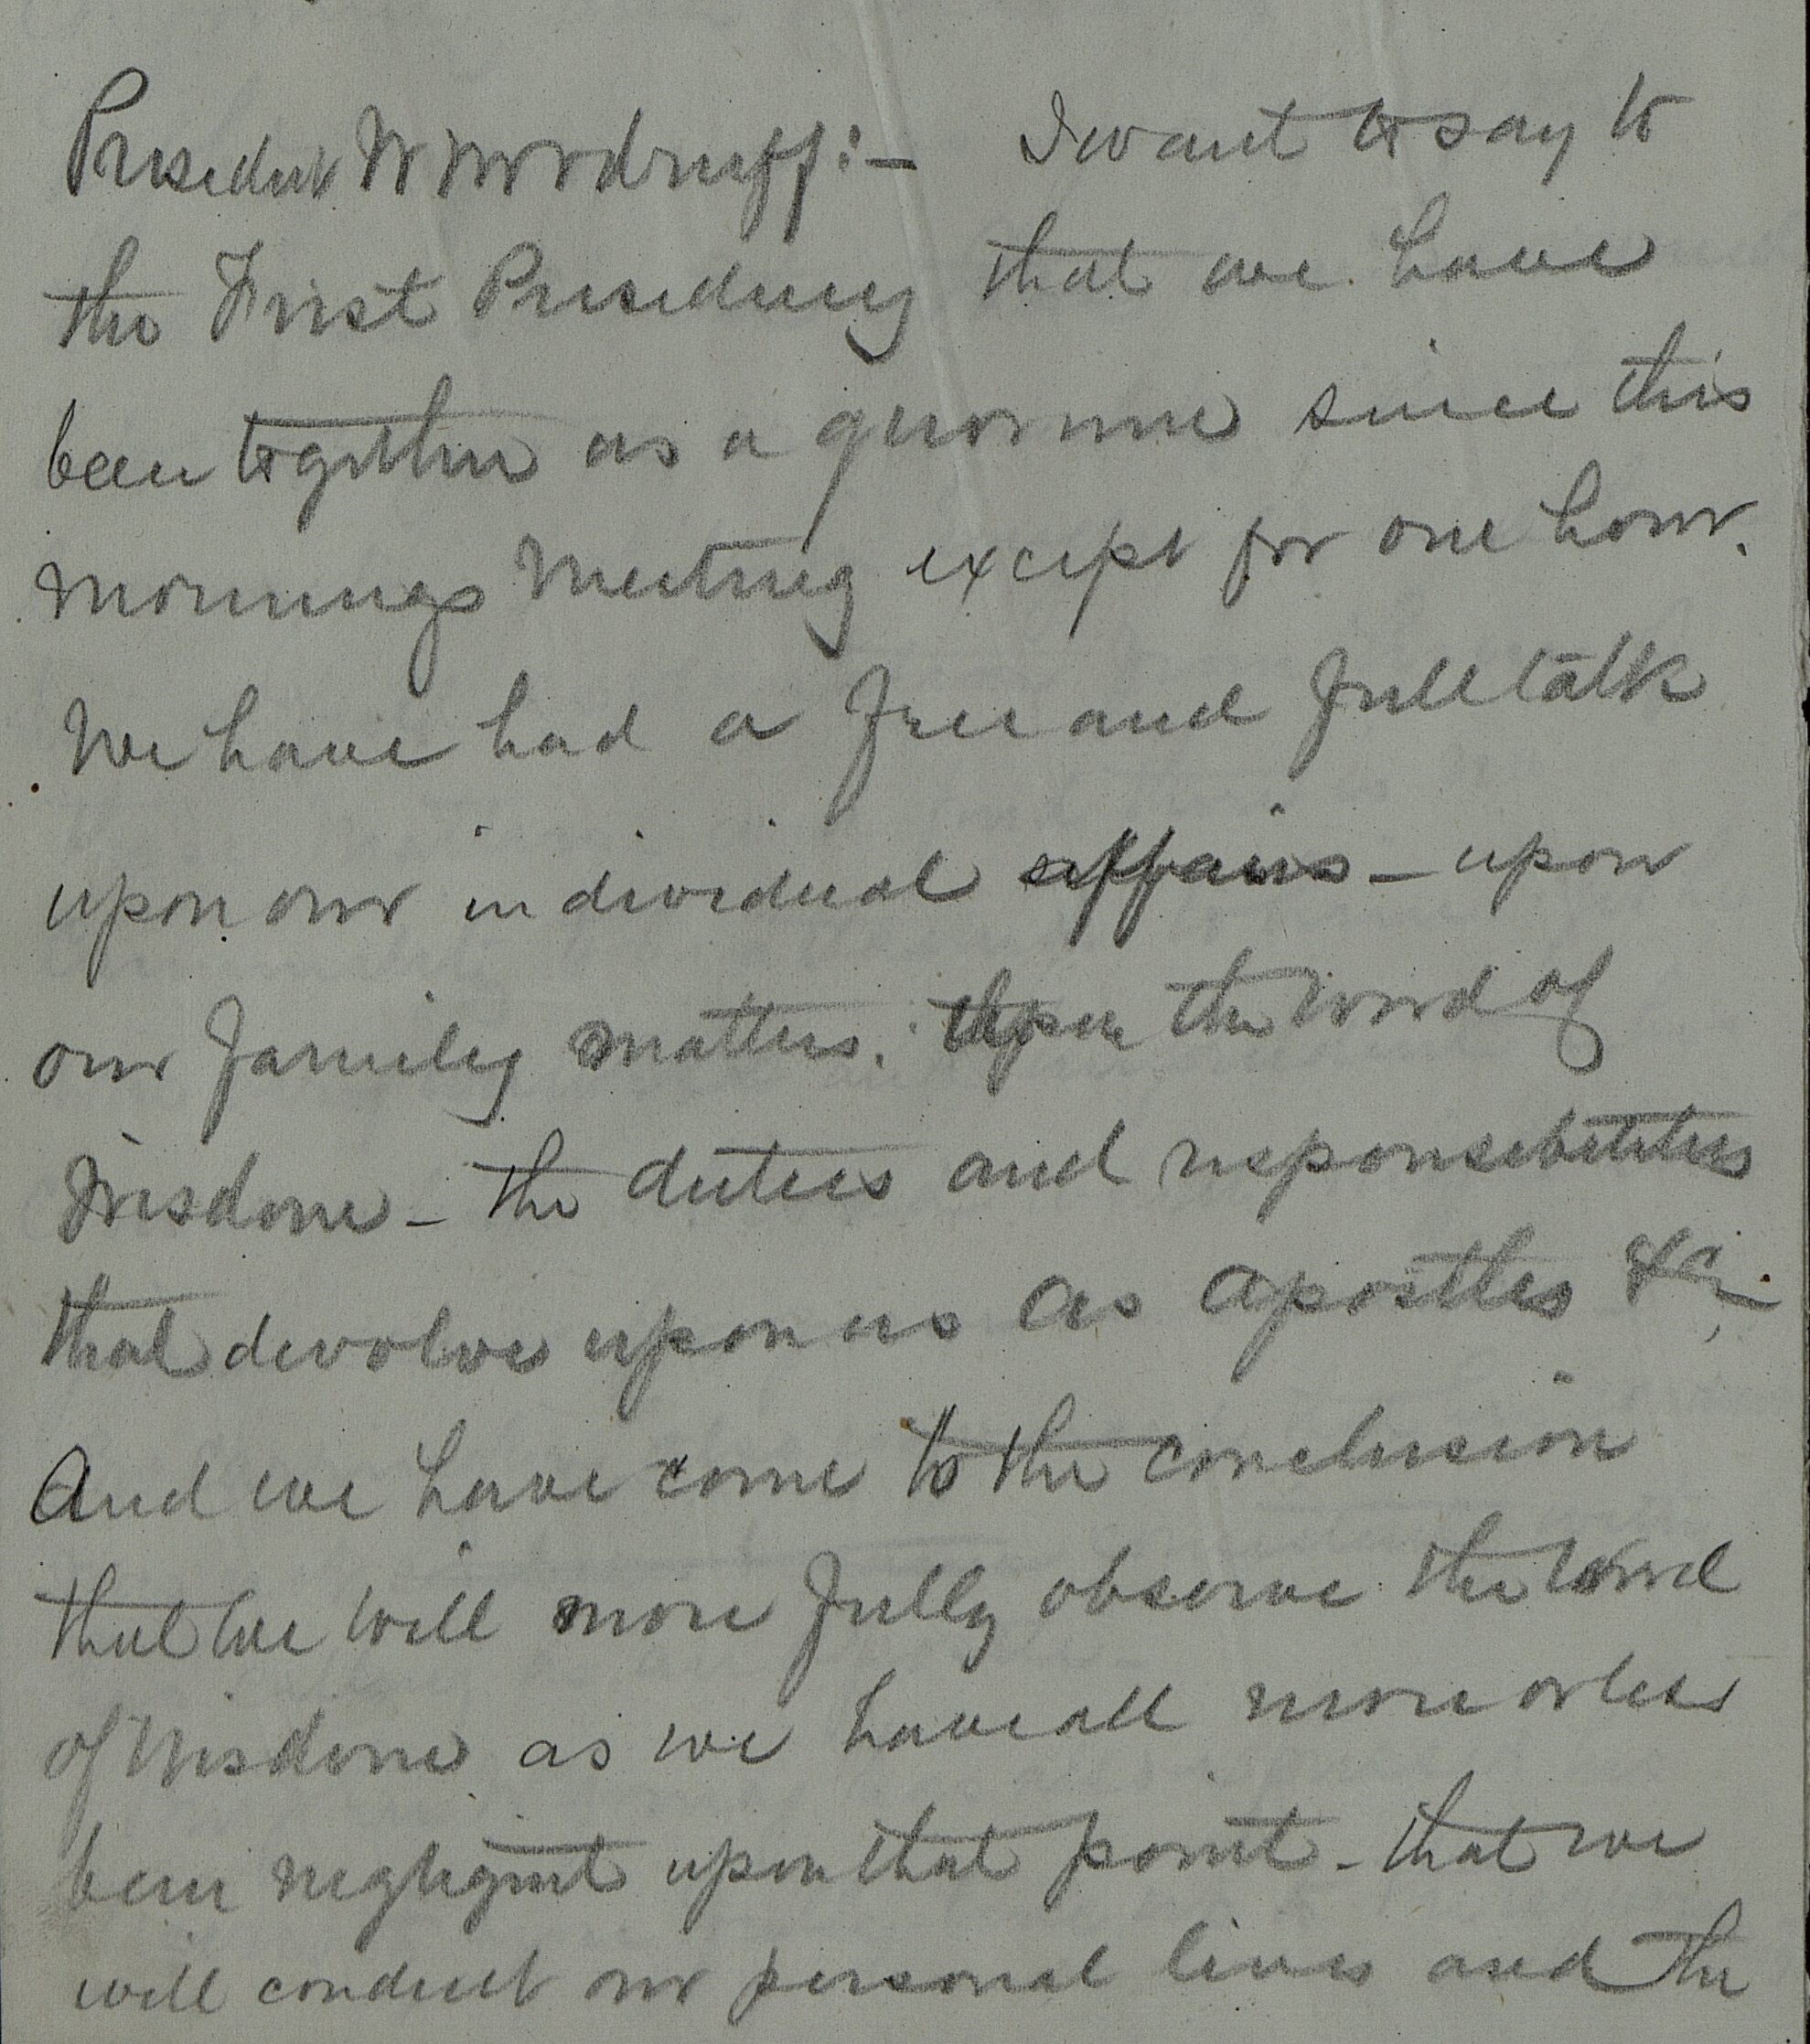 President W Woodruff:— I want to say to
the First Presidency that we have
been together as a quorum since this
mornings Meeting except for one hour.
We have had a free and full talk
upon our individual affairs – upon
our family matters. Upon the Word of
Wisdom – the duties and responsibilities
that devolve upon us as Apostles &c.
And we have come to the conclusion
that we will more fully observe the Word
of Wisdom as we have all more or less
been negligent upon that point – that we
will conduct our personal lives and the